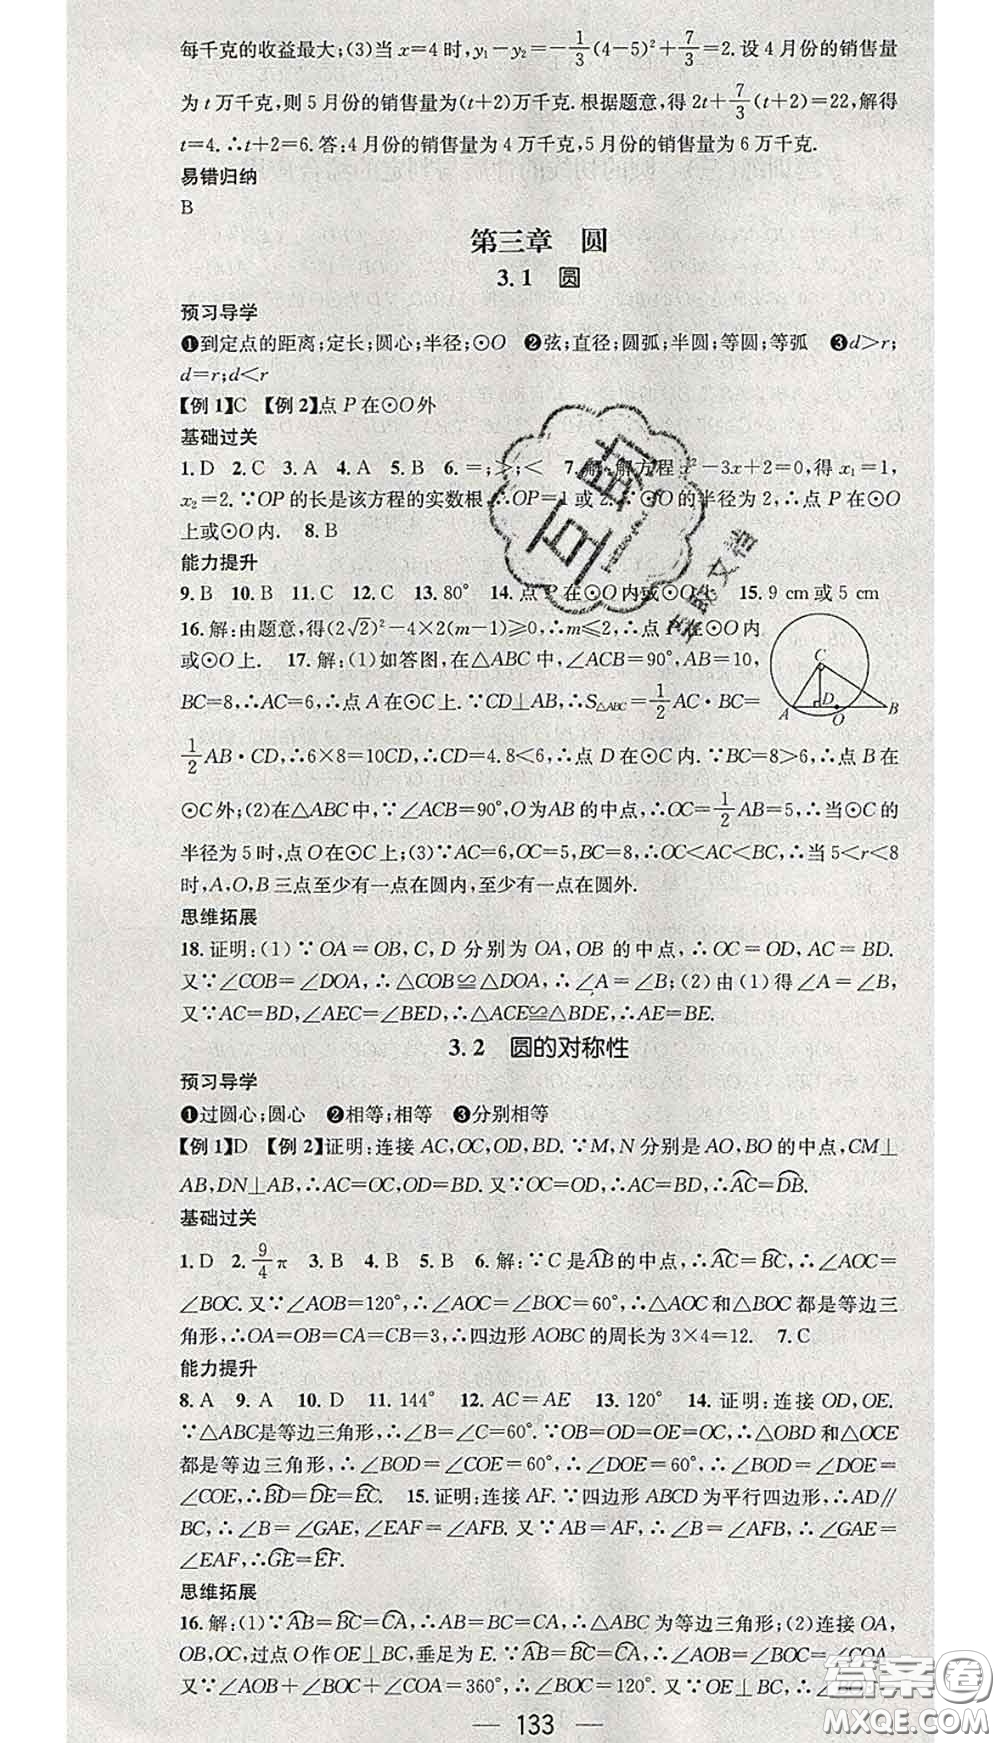 每千克的收益最大;(3)当 x=4 时,y₁-y₂=-1/3(4-5)²+7/3=2. 设 4 月份的销售量
为 t 万千克,则 5 月份的销售量为(t+2)万千克. 根据题意,得 2t+7/3(t+2)=22,解得
t=4.∴t+2=6. 答:4 月份的销售量为 4 万千克,5 月份的销售量为 6 万千克.
易错归纳
B
第三章 圆
3.1 圆
预习导学
❶到定点的距离;定长;圆心;半径;⊙O ❷弦;直径;圆弧;半圆;等圆;等弧 ❸d>r;
d=r;d<r
【例 1】C 【例 2】点 P 在⊙O 外
基础过关
1. D 2. C 3. A 4. A 5. B 6. =;>;< 7. 解:解方程 x²-3x+2=0,得 x₁=1,
x₂=2.∵OP 的长是该方程的实数根,∴OP=1 或 2.∵⊙O 的半径为 2,∴点 P 在⊙O
上或⊙O 内. 8. B
能力提升
9. B 10. B 11. C 12. C 13. 80° 14. 点 P 在⊙O 内或⊙O 上 15. 9 cm 或 5 cm
16. 解:由题意,得(2√2)²-4×2(m-1)≥0,∴m≤2,∴点 P 在⊙O 内
或⊙O 上. 17. 解:(1)如答图,在△ABC 中,∠ACB=90°,AB=10,
BC=8,∴AC=6,∴点 A 在⊙C 上.∵CD⊥AB,∴S△ABC=1/2AC·BC=
C
A
D
O
B
1/2AB·CD,∴6×8=10CD,∴CD=4.8<6,∴点 D 在⊙C 内.∵BC=8>6,∴点 B 在
⊙C 外;(2)在△ABC 中,∵∠ACB=90°,O 为 AB 的中点,∴OC=1/2AB=5,∴当⊙C 的
半径为 5 时,点 O 在⊙C 上;(3)∵AC=6,OC=5,BC=8,∴OC<AC<BC,∴当 5<r<8
时,A,O,B 三点至少有一点在圆内,至少有一点在圆外.
思维拓展
18. 证明:(1)∵OA=OB,C,D 分别为 OA,OB 的中点,∴OC=OD,AC=BD.
又∵∠COB=∠DOA,∴△COB≌△DOA,∴∠A=∠B;(2)由(1)得∠A=∠B,
又∵AC=BD,∠AEC=∠BED,∴△ACE≌△BDE,∴AE=BE.
3.2 圆的对称性
预习导学
❶过圆心;圆心 ❷相等;相等 ❸分别相等
【例 1】D 【例 2】证明:连接 AC,OC,OD,BD.∵M,N 分别是 AO,BO 的中点,CM⊥
AB,DN⊥AB,∴AC=OC,OD=BD. 又∵OC=OD,∴AC=BD,∴AC⌒=DB⌒.
基础过关
1. D 2. 9/4π 3. B 4. B 5. B 6. 解:∵C 是AB⌒的中点,∴AC⌒=BC⌒,∴∠AOC=
∠BOC. 又∵∠AOB=120°,∴∠AOC=∠BOC=60°,∴△AOC 和△BOC 都是等边三
角形,∴OA=OB=CA=CB=3,∴四边形 AOBC 的周长为 3×4=12. 7. C
能力提升
8. A 9. A 10. D 11. 144° 12. AC=AE 13. 120° 14. 证明:连接 OD,OE.
∵△ABC 是等边三角形,∴∠B=∠C=60°.∵OB=OD=OE=OC,∴△OBD 和△OCE
都是等边三角形,∴∠BOD=∠COE=60°,∴∠DOE=60°,∴∠BOD=∠DOE=
∠COE,∴BD⌒=DE⌒=EC⌒. 15. 证明:连接 AF.∵四边形 ABCD 为平行四边形,∴AD∥
BC,∴∠B=∠GAE,∠EAF=∠AFB. 又∵AB=AF,∴∠B=∠AFB,∴∠GAE=
∠EAF,∴GE⌒=EF⌒.
思维拓展
16. 解:(1)∵AB⌒=BC⌒=CA⌒,∴AB=BC=CA,∴△ABC 为等边三角形;(2)连接 OA,
OB,OC,过点 O 作 OE⊥BC,垂足为 E.∵AB⌒=BC⌒=CA⌒,∴∠AOB=∠BOC=∠COA.
又∵∠AOB+∠BOC+∠COA=360°,∴∠BOC=120°. 又∵OE⊥BC,∴∠BOE=
— 133 —
答案圈
MXQE.COM